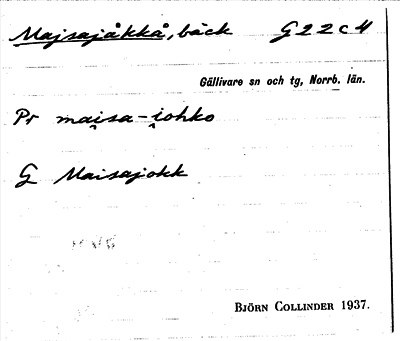 Majsajåkkå, bäck G 22 c 4
Gällivare sn och tg, Norrb. län.
Pr mai̯sa-i̯ohko
G Maisajokk
BJÖRN COLLINDER 1937.